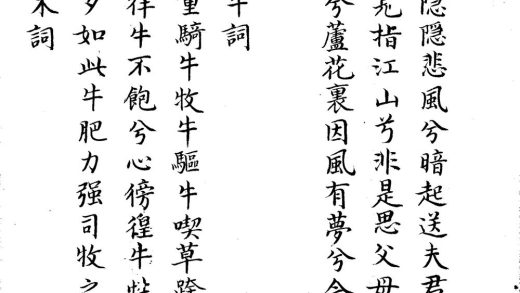 隱隱悲風兮暗起送夫君
指江山兮非是思父母
兮蘆花裏因風有夢兮
牛詞
童騎牛牧牛驅牛喫草
牛不飽兮心徬徨牛
如此牛肥力强司牧之
詞